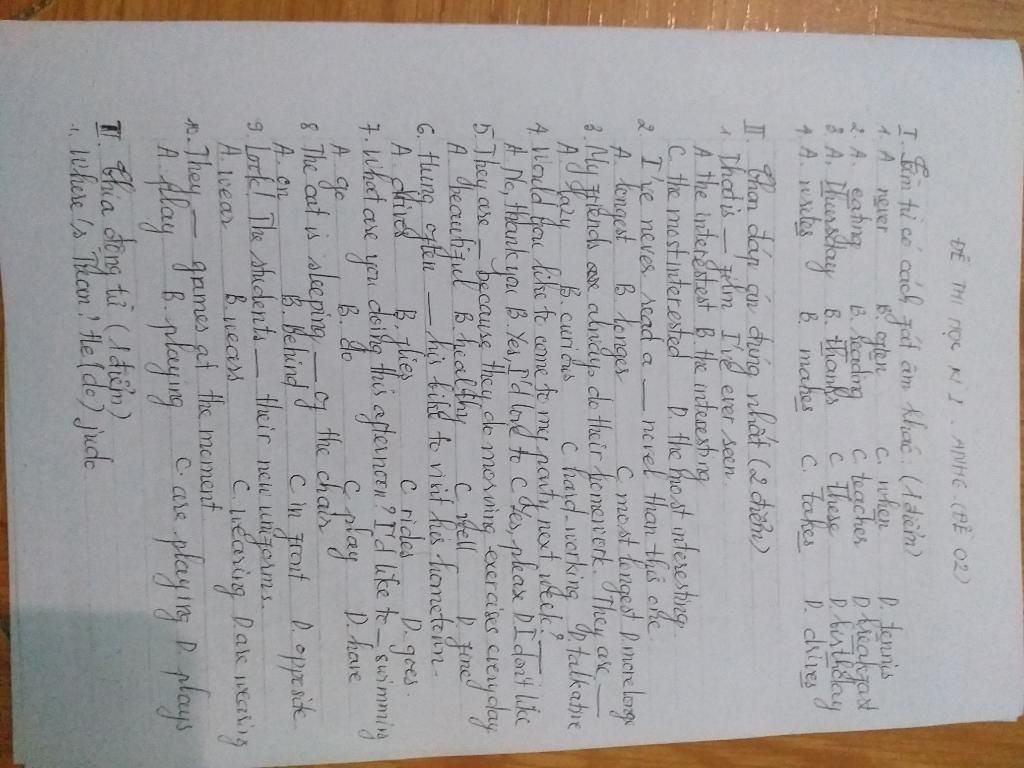 ĐỀ THI HỌC KÌ I. ANH6. (ĐỀ 02)
I. Tìm từ có cách phát âm khác: (1 điểm)
1. A never B. open C. when D. tennis
2. A. eating B. reading C. teacher D. breakfast
3. A. Thursday B. thanks C. These D. birthday
4. A. writes B. makes C. takes D. drives
II. Chọn đáp án đúng nhất (2 điểm)
1. That is ___ film I've ever seen.
A the interestest B. the interesting
C. the most interested D. the most interesting.
2. I've never read a ___ novel than this one
A. longest B. longer C. most longest D. more longer
3. My friends always do their homework. They are ___
A. lazy B. curious C. hard-working D. talkative
4. Would you like to come to my party next week?
A. No, thank you B. Yes, I'd love to C. Yes, please D. I don't like
5. They are ___ because they do morning exercise everyday
A. beautiful B. healthy C. well D. fine
6. Hung often ___ his bike to visit his hometown.
A. drives B. flies C. rides D. goes.
7. What are you doing this afternoon? I'd like to ___ swimming
A. go B. do C. play D. have
8. The cat is sleeping ___ of the chair
A. on B. Behind C. in front D. opposite
9. Look! The students ___ their new uniforms.
A. wear B. wears C. wearing D. are wearing
10. They ___ games at the moment.
A. play B. playing C. are playing D. plays
III. Chia động từ (1 điểm)
1. Where is Nam? He (do) judo